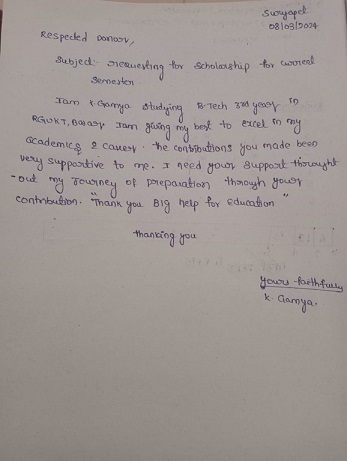 Suryapet
08/03/2024
Respected Donor,
Subject: requesting for Scholarship for current
Semester
I am K.Gamya studying B.Tech 3rd year in
RGUKT, Basar I am giving my best to excel in my
Academics & career. The contributions you made been
very supportive to me. I need your support throught
-out my Journey of preparation through your
contribution. "Thank you BIG help for Education"
thanking you
yours faithfully
K. Gamya.